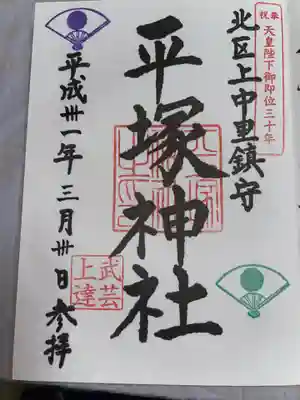 奉祝 天皇陛下御即位三十年
北区上中里鎮守
平塚神社
武芸上達
平成卅一年三月卅日参拝